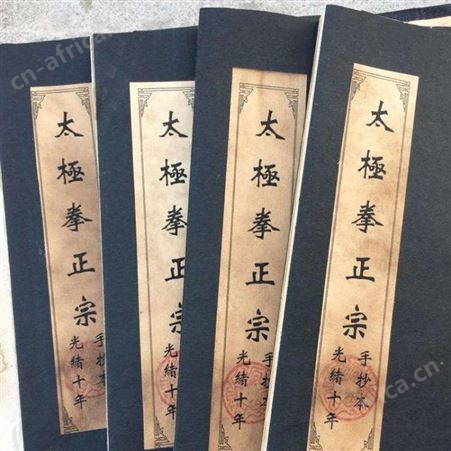 太極拳正宗
手抄本
光緒十年
太極拳正宗
手抄本
光緒十年
太極拳正宗
手抄
光緒十年
太極拳正宗
手抄本
光緒十年
cn-africa.com.cn